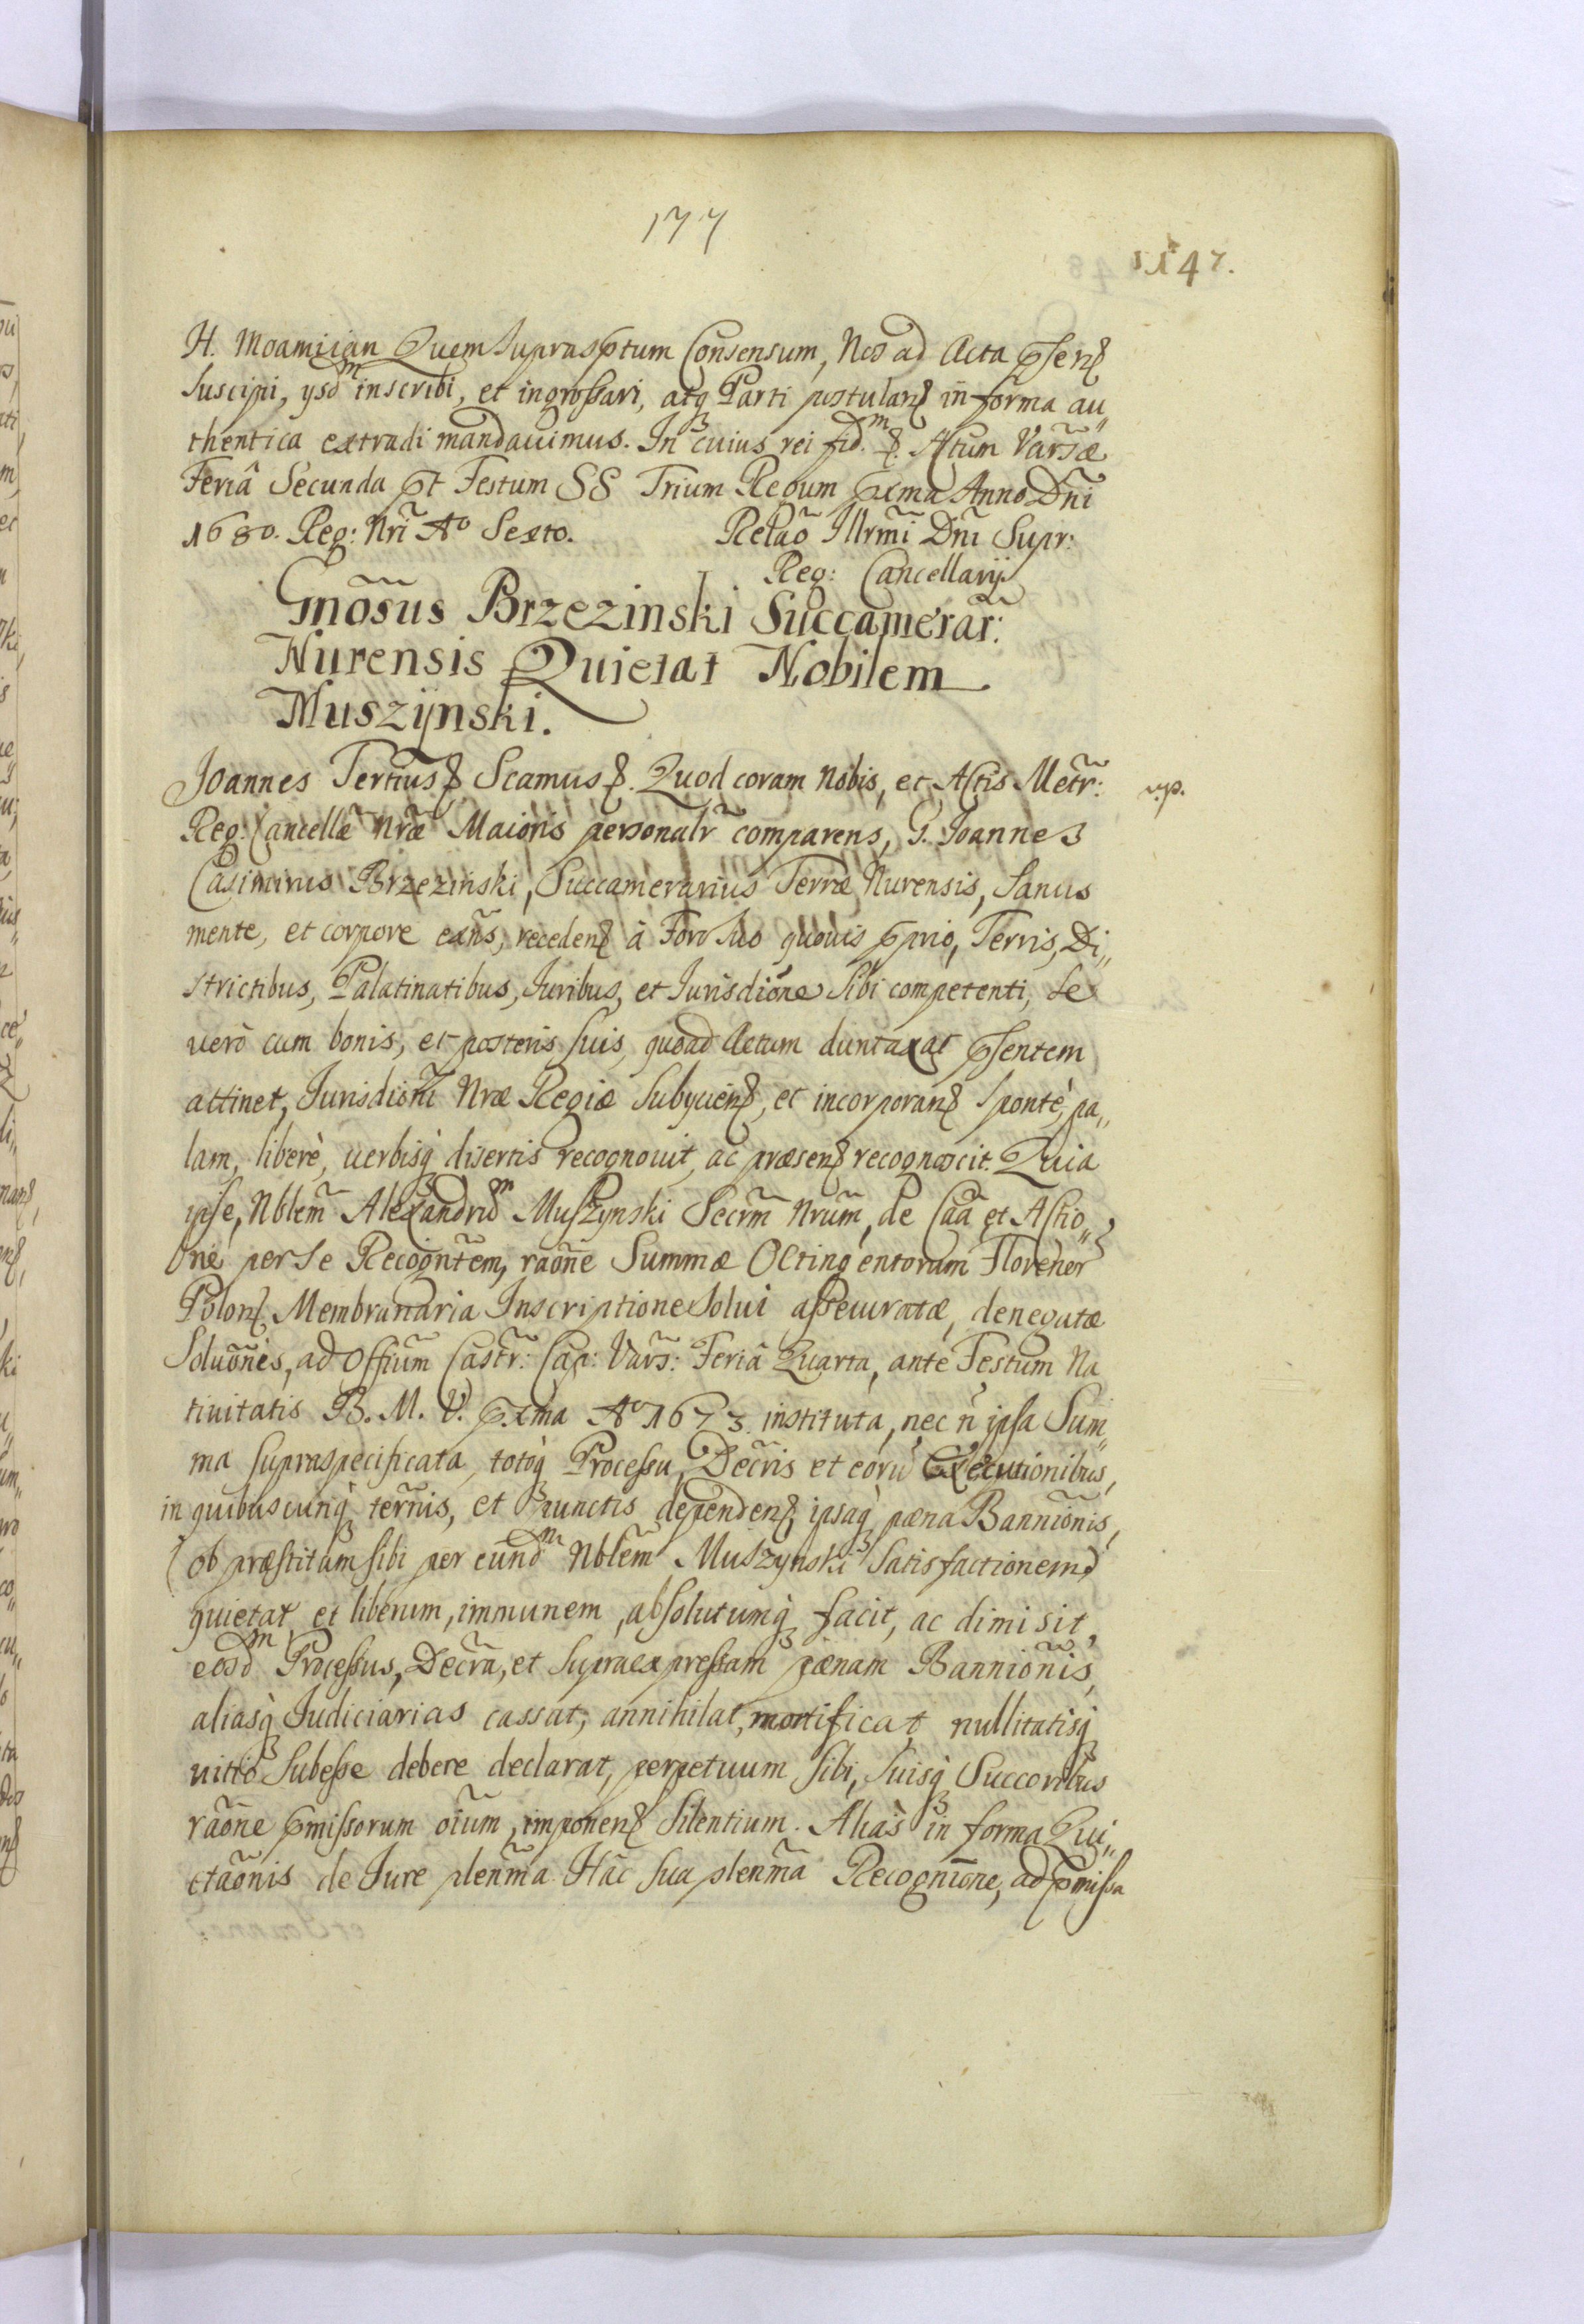 177
1147.
H. Moamijan Quem suprasptum Consensum, Nos ad Acta psenς
suscipi, ysdm inscribi, et ingrossari, atq Parti postulanς in forma au„
thentica extradi mandauimus. In cuius rei fid.m ς. Actum Varsæ
Feriâ Secunda pt Festum SS Trium Regum pxma Anno Dni
1680. Reg: Nri Ao Sexto. Relaõ Illrmi Dni Supr:
Reg: Cancellarij
Gnõsus Brzezinski Succamerar:
Nurensis Quietat Nobilem
Muszÿnski.
Joannes Tertius ς Scamus ς. Quod coram Nobis, et Actis Metr:
v.p.
Reg: Cancellæ Nræ Maioris personalr comparens, G. Joannes
Casimirus Brzezinski, Succamerarius Terræ Nurensis, Sanus
mente, et corpore exñs, recedenς à Foro suo quouis pprio, Terris, Di„
strictibus, Palatinatibus, Iuribus, et Iurisdiõne sibi competenti, se
uerò cum bonis, et posteris suis, quoad Actum duntaxat psentem
attinet, Iurisdioni Nræ Regiæ subycienς, et incorporanς sponte, pa„
lam, liberè, uerbisq disertis recognouit, ac præsenς recognoscit. Quia
ipse, Nblem Alexandrum Muszynski Secrm Nrum, de Caa et Actio„
one per se Recogntem, raõne Summæ Octingentorum Florenor
Polonς Membranaria Inscriptione solui assecuratæ, denegatæ
Soluõnes, ad Offium Castr: Cap: Vars: Feriâ Quarta, ante Festum Na
tiuitatis B. M. V. pxma Ao 1673. instituta, nec ñ ipsa Sum„
ma supraspecificata, totoq Processu, Decris et eorũ Executionibus,
in quibuscunq ternis, et punctis dependenς ipsaq pæna Bannionis,
(ob præstitam sibi per eundm Nblem Muszynski satisfactionem)
quietat, et liberum, immunem, absolutumq facit, ac dimisit,
eosdm Processus, Decra, et supraexpressam pænam Bannionis,
aliasq Iudiciarias cassat, annihilat, mortificat, nullitatisq
uitio subesse debere declarat, perpetuum sibi, suisq Succoribus
raõne pmissorum oium, imponenς silentium. Aliàs in forma Qui„
etaõnis de Iure plenma. Hac sua plenma Recognione, ad pmissa